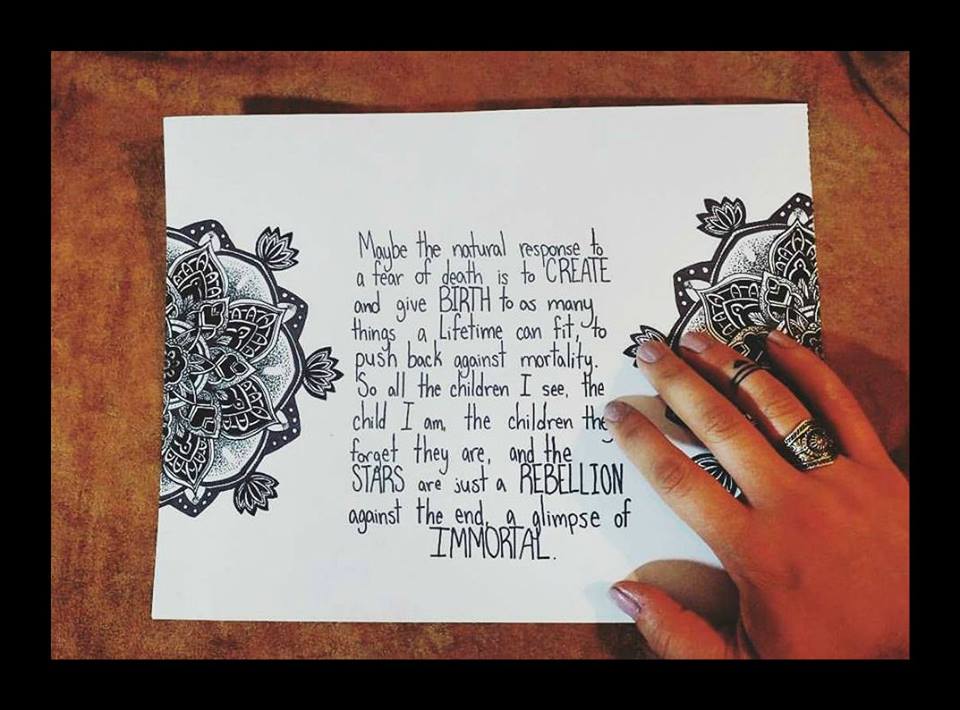 Maybe the natural response to
a fear of death is to CREATE
and give BIRTH to as many
things a lifetime can fit, to
push back against mortality.
So all the children I see, the
child I am, the children they
forget they are, and the
STARS are just a REBELLION
against the end, a glimpse of
IMMORTAL.